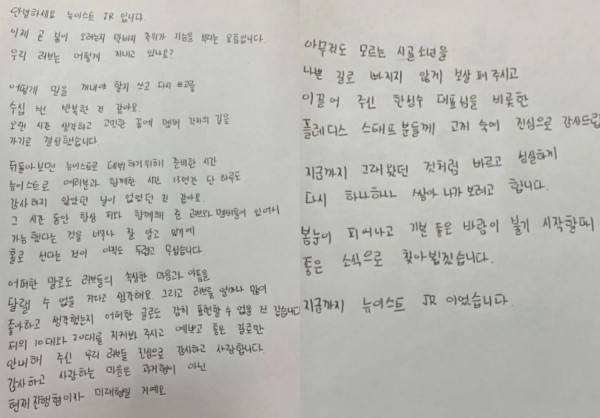 안녕하세요 뉴이스트 JR 입니다.
이제 곧 봄이 오려는지 막바지 추위가 기승을 부리는 요즘입니다.
우리 러브는 어떻게 지내고 있나요?
어떻게 말을 꺼내야 할지 쓰고 다시 쓰고를
수십 번 반복한 것 같아요.
오랜 시간 생각하고 고민한 끝에 멤버 각자의 길을
가기로 결심했습니다
뒤돌아보면 뉴이스트로 데뷔하기 위해 준비한 시간
뉴이스트로 여러분과 함께한 시간 13년간 단 하루도
감사하지 않았던 날이 없었던 것 같아요.
그 시간 동안 항상 저와 함께해 준 러브와 멤버들이 있어서
가능했다는 것을 너무나 잘 알고 있기에
홀로 선다는 것이 아직도 두렵고 무섭습니다.
어떠한 말로도 러브들의 속상한 마음과 아픔을
달랠 수 없을 거라고 생각해요. 그리고 러브를 얼마나 많이
좋아하고 생각했는지 어떠한 글로도 감히 표현할 수 없을 것 같습니다
저의 10대와 20대를 지켜봐 주시고 예쁘고 좋은 길로만
안내해 주신 우리 러브들 진심으로 감사하고 사랑합니다.
감사하고 사랑하는 마음은 과거형이 아닌
현재 진행형이자 미래형일 거예요
아무것도 모르는 시골 소년을
나쁜 길로 빠지지 않게 보살펴 주시고
이끌어 주신 한성수 대표님을 비롯한
플레디스 스태프 분들께 고개 숙여 진심으로 감사드립
지금까지 그래왔던 것처럼 바르고 성실하게
다시 하나하나 쌓아 나가 보려고 합니다.
봄눈이 피어나고 기분 좋은 바람이 불기 시작할때
좋은 소식으로 찾아뵙겠습니다.
지금까지 뉴이스트 JR 이었습니다.